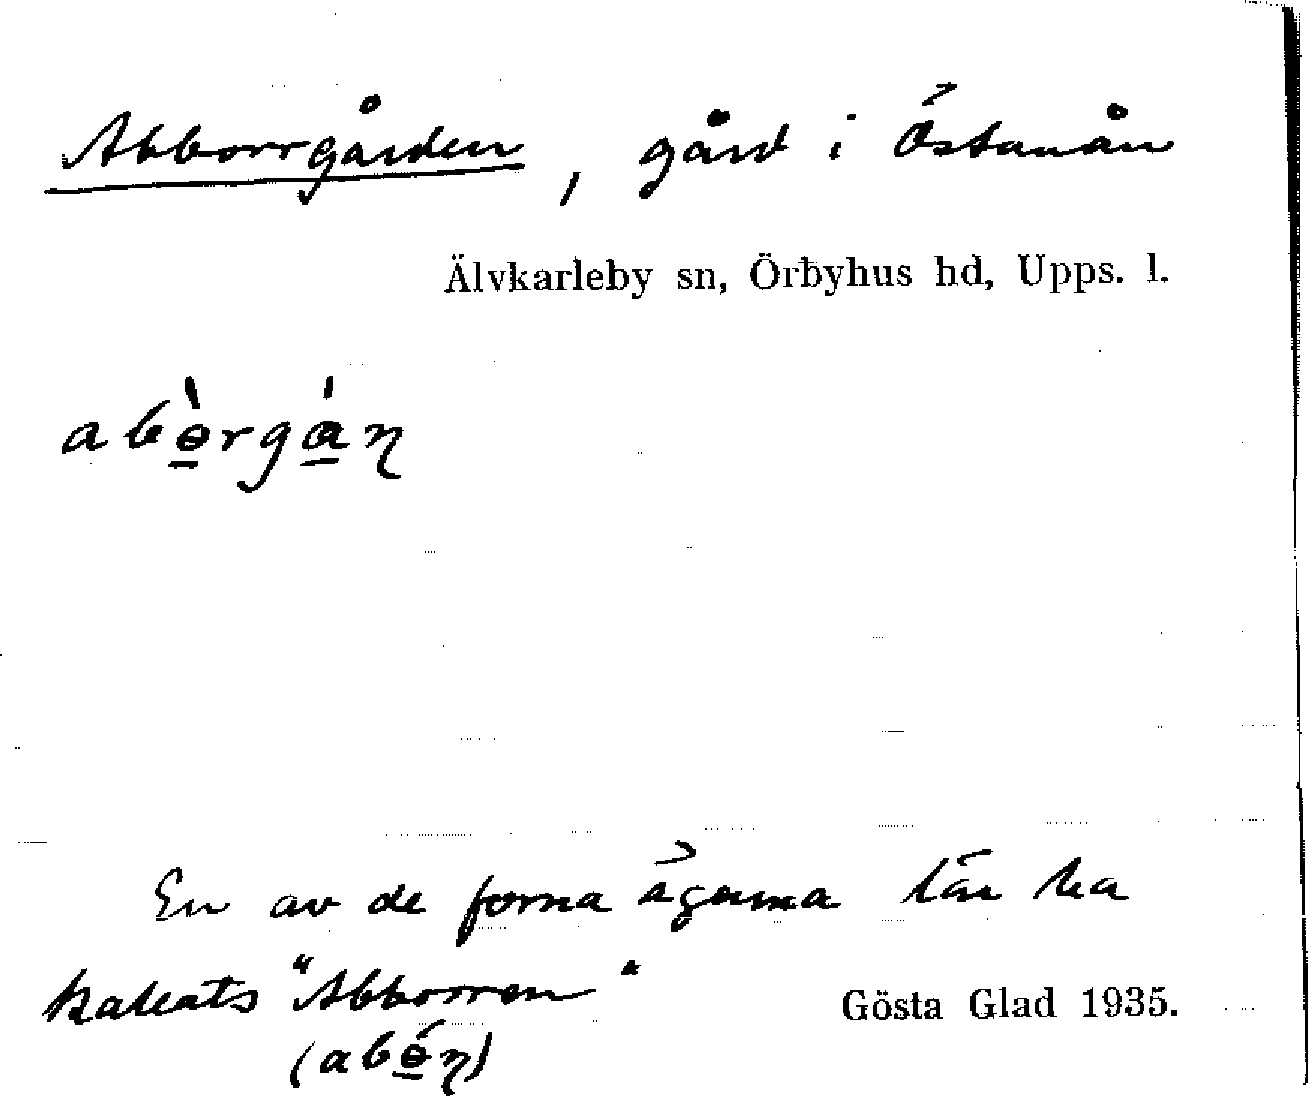 Abborrgården, gård i Östanån
Älvkarleby sn, Örbyhus hd, Upps. l.
abɵ̀rgán
En av de forna ägarna lär ha
kallats "Abborren"
Gösta Glad 1935.
(abɵ́n)